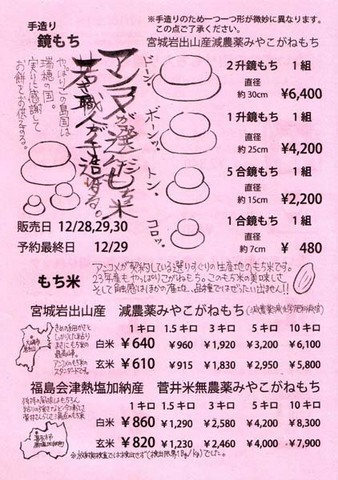 手造り
鏡もち
※手造りのため一つ一つ形が微妙に異なります。
この点ご了承ください。
宮城岩出山産減農薬みやこがねもち
やっぱりこの島国は
瑞穂の国。
実りに感謝して
お餅をお供えする。
アンコメが選んだもち米
若き職人が手造りする。
ドーン
2升鏡もち 1組
直径
約30cm ¥6,400
ボーンッ
1升鏡もち 1組
直径
約25cm ¥4,200
トン、
5合鏡もち 1組
直径
約15cm ¥2,200
コロッ。
1合鏡もち 1組
直径
約7cm ¥480
販売日 12/28,29,30
予約最終日 12/29
もち米
アンコメが契約している選りすぐりの生産地のもち米です。
23年産も、やっぱりこがねもち。このもち米の美味しさ、
宮城岩出山産 減農薬みやこがねもち
1キロ 1.5キロ 3キロ 5キロ 10キロ
白米 ¥640 ¥960 ¥1,920 ¥3,200 ¥6,100
玄米 ¥610 ¥915 ¥1,830 ¥2,950 ¥5,800
福島会津熱塩加納産 菅井米無農薬みやこがねもち
1キロ 1.5キロ 3キロ 5キロ 10キロ
白米 ¥860 ¥1,290 ¥2,580 ¥4,200 ¥8,300
玄米 ¥820 ¥1,230 ¥2,460 ¥4,000 ¥7,900